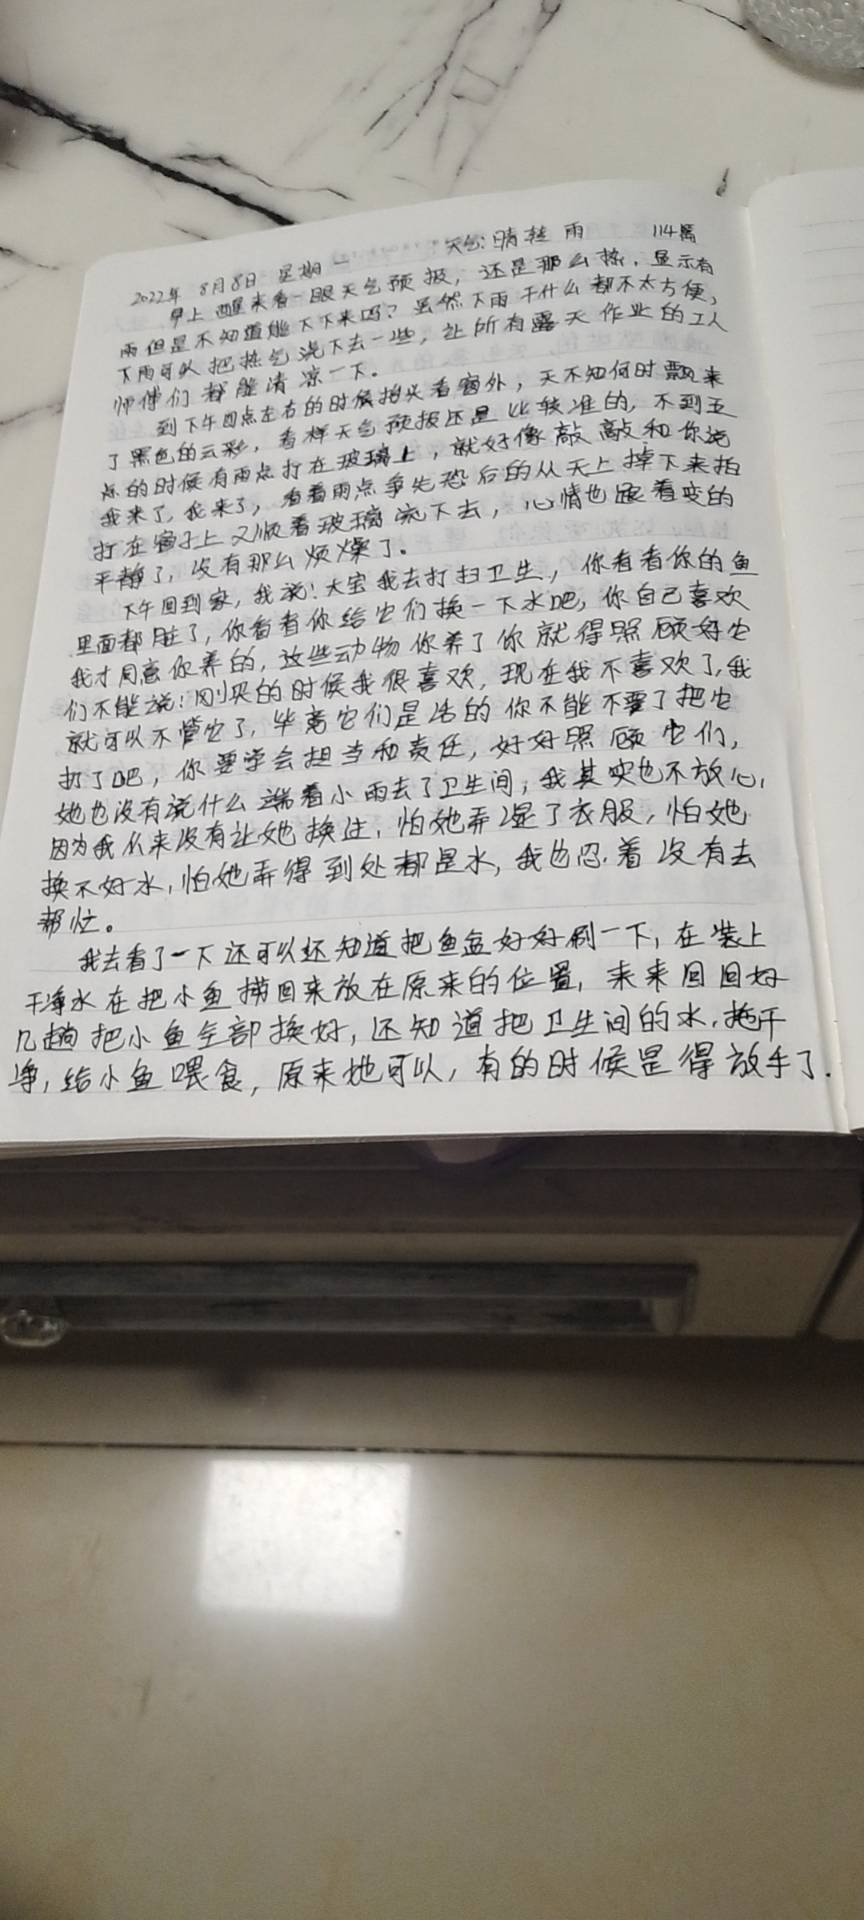 2022年 8月8日 星期一 天气:晴转雨 114篇
早上醒来看一眼天气预报，还是那么热，显示有
雨但是不知道能下下来吗？虽然下雨干什么都不太方便，
下雨可以把热气浇下去一些，让所有露天作业的工人
师傅们都能清凉一下。
到下午四点左右的时候抬头看窗外，天不知何时飘来
了黑色的云彩，看样天气预报还是比较准的，不到五
点的时候有雨点打在玻璃上，就好像敲敲和你说
我来了，我来了，看着雨点争先恐后的从天上掉下来拍
打在窗子上又顺着玻璃流下去，心情也跟着变的
平静了，没有那么烦燥了。
下午回到家，我说！大宝我去打扫卫生，你看看你的鱼
里面都脏了，你看看你给它们换一下水吧，你自己喜欢
我才同意你养的，这些动物你养了你就得照顾好它
们不能说！刚买的时候我很喜欢，现在我不喜欢了，我
就可以不管它了，毕竟它们是活的你不能不要了把它
扔了吧，你要学会担当和责任，好好照顾它们，
她也没有说什么端着小雨去了卫生间，我其实也不放心，
因为我从来没有让她换过，怕她弄湿了衣服，怕她
换不好水，怕她弄得到处都是水，我也忍着没有去
帮忙。
我去看了一下还可以还知道把鱼盆好好刷一下，在装上
干净水在把小鱼捞回来放在原来的位置，来来回回好
几趟把小鱼全部换好，还知道把卫生间的水，拖干
净，给小鱼喂食，原来她可以，有的时候是得放手了.